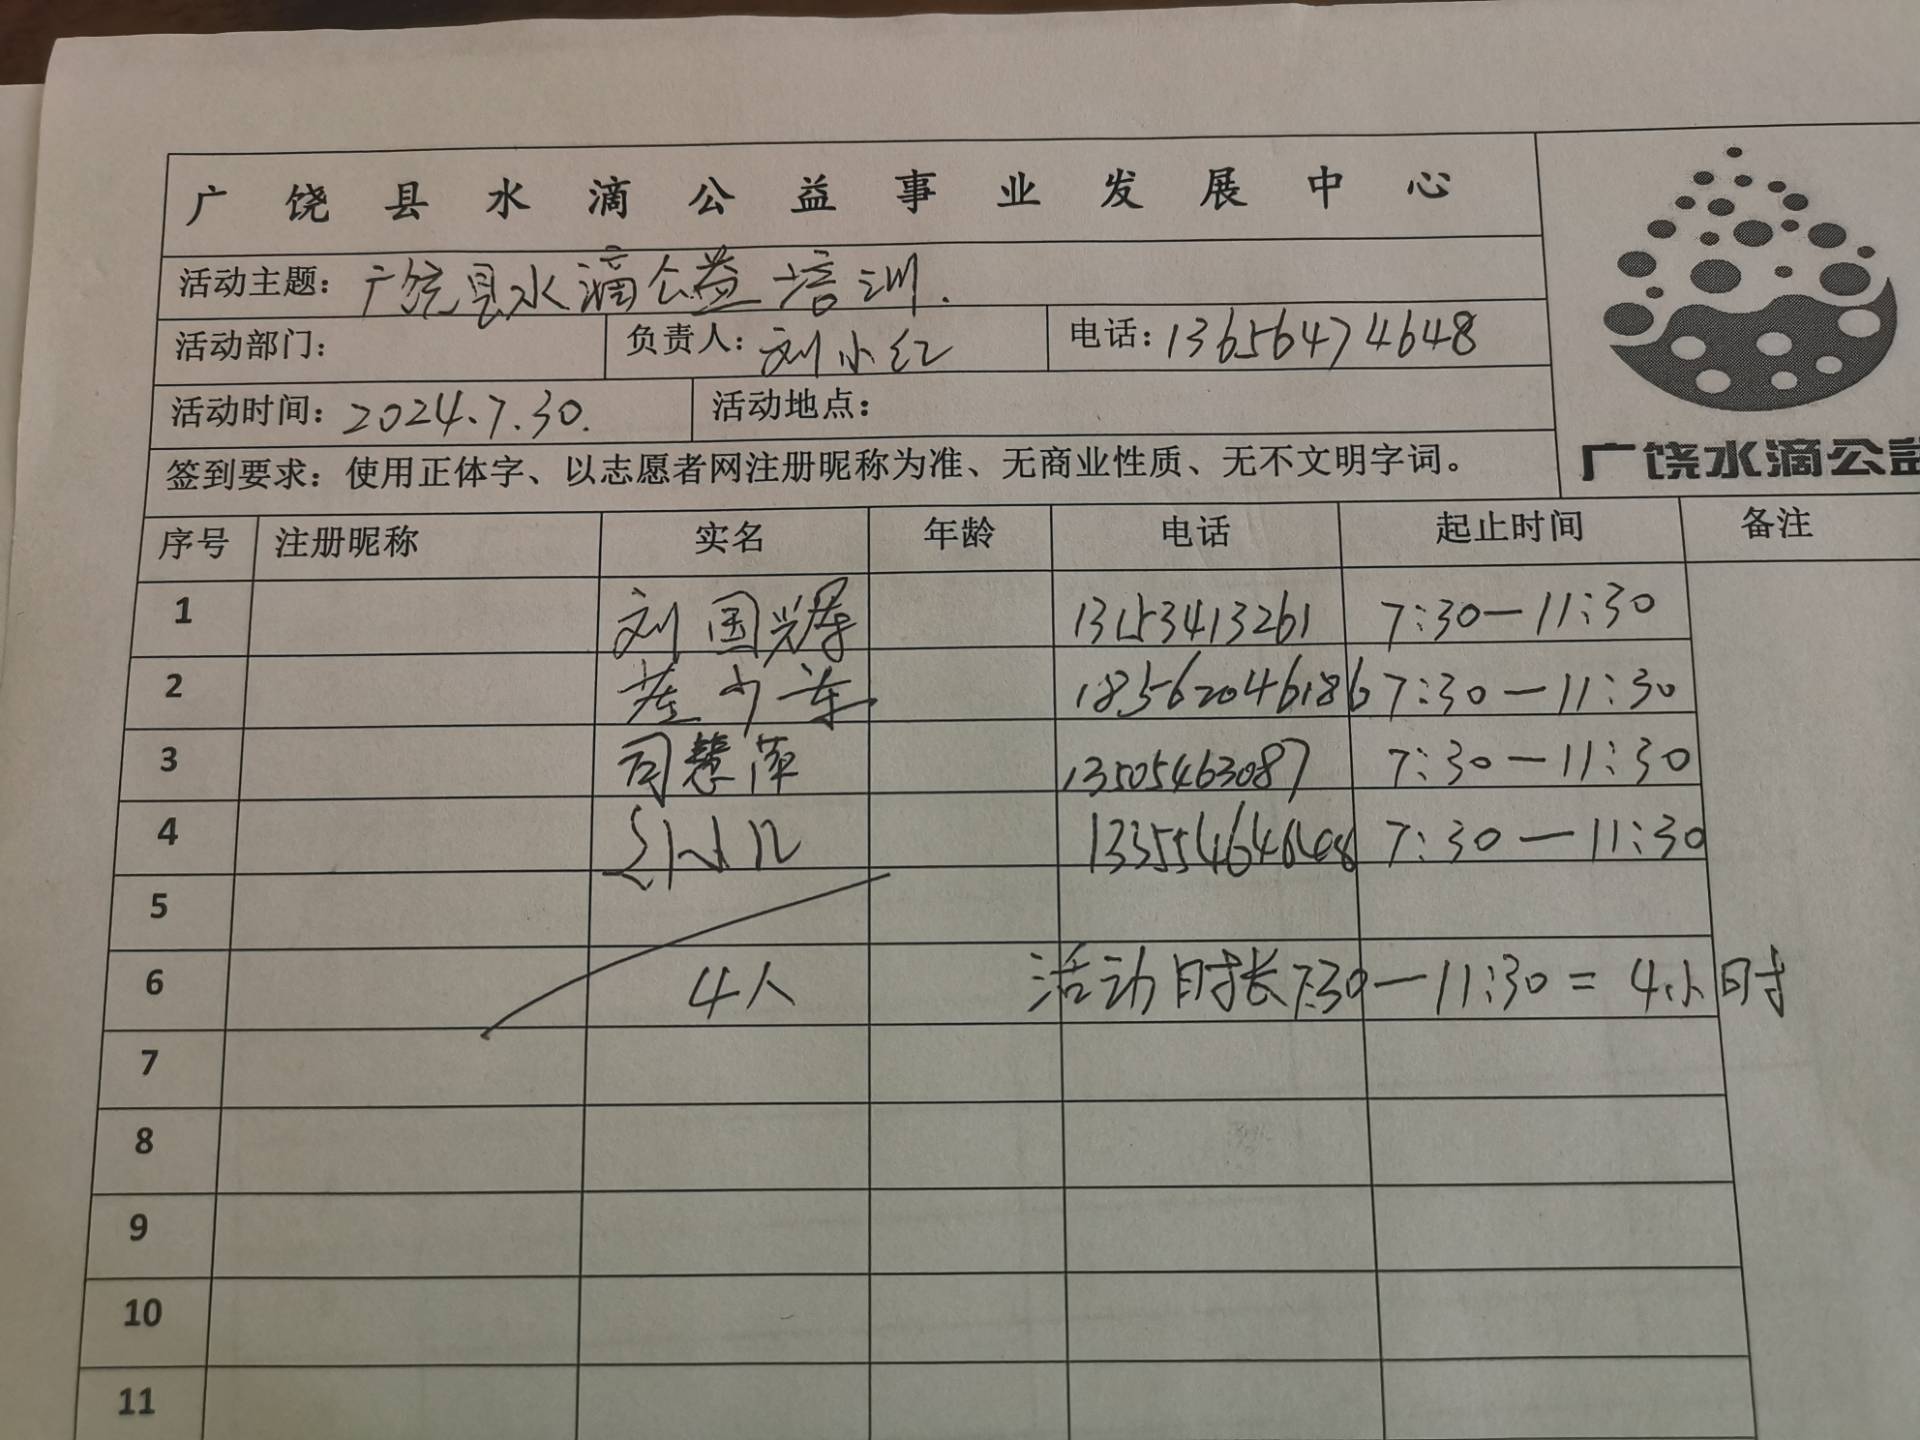 广饶县水滴公益事业发展中心
活动主题：广饶县水滴公益培训.
活动部门： 负责人：刘小红 电话：13656474648
活动时间：2024.7.30. 活动地点：
签到要求：使用正体字、以志愿者网注册昵称为准、无商业性质、无不文明字词。
广饶水滴公益
序号 注册昵称 实名 年龄 电话 起止时间 备注
1 刘国辉 13153413261 7:30—11:30
2 18562046186 7:30—11:30
3 司慧萍 13505463087 7:30—11:30
4 7:30—11:30
5
6 4人 活动时长7:30—11:30=4小时
7
8
9
10
11